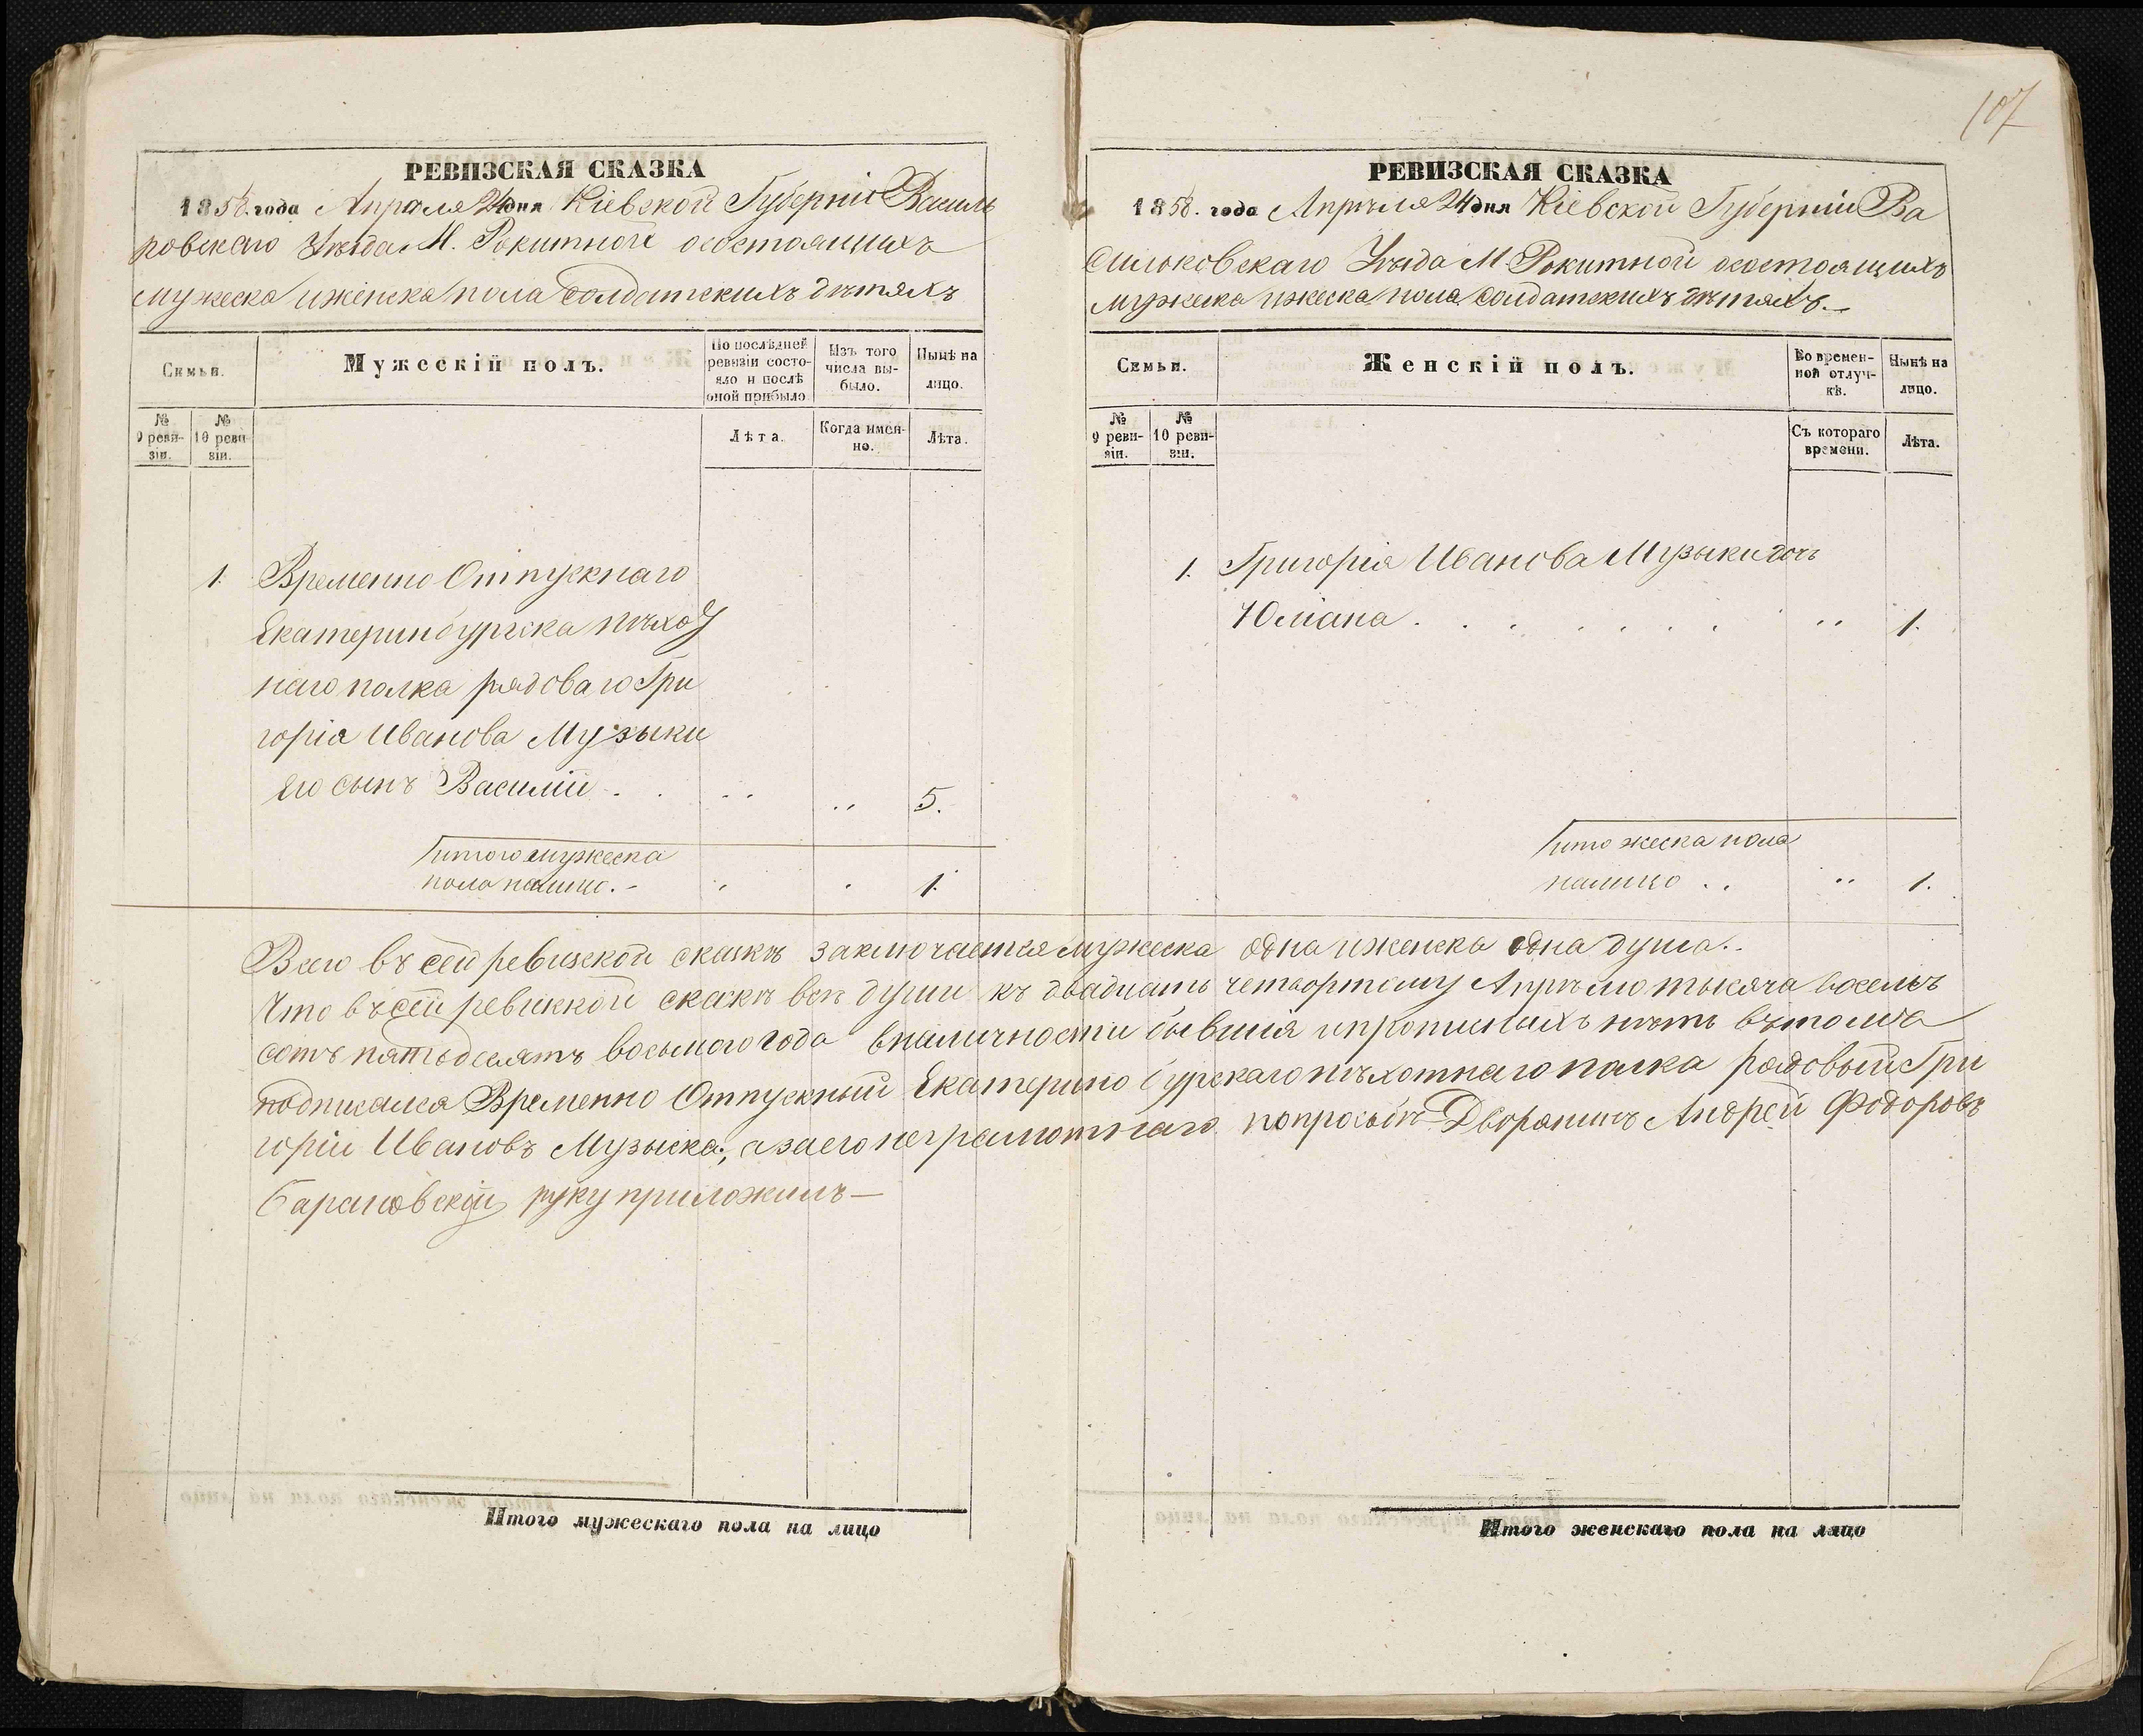 107
РЕВИЗСКАЯ СКАЗКА
1858. года Апреля 24 дня Кіевской Губерніи Василь
ковскаго Уѣзда М. Рокитной осостоящихъ
мужеска иженска пола солдатскихъ дѣтяхъ
Семьи.
Мужескій полъ.
По послѣдней ревизіи состояло и послѣ оной прибыло
Изъ того числа выбыло.
Нынѣ на лицо.
№ 9 ревизіи.
№ 10 ревизіи.
Лѣта.
Когда именно.
Лѣта.
1. Временно Отпускнаго
Екатеринбургска пѣхот
наго полка рядоваго Гри
горія Иванова Музыки
Его сынъ Василій . . . . „ 5.
Итого мужеска
пола налицо. - „ „ 1.
РЕВИЗСКАЯ СКАЗКА
1858. года Апрѣля 24 дня Кіевской Губерніи Ва
сильковскаго Уѣзда М. Рокитной осостоящихъ
мужеска ижеска пола солдатскихъ дѣтяхъ. -
Семьи.
Женскій полъ.
Во временной отлучкѣ.
Нынѣ на лицо.
№ 9 ревизіи.
№ 10 ревизіи.
Съ котораго времени.
Лѣта.
1. Григорія Иванова Музыки дочь
Юліана . . . . . . . „ 1.
Итого жеска пола
налицо . . „ 1.
Всего въ сей ревизской сказкѣ заключается мужеска одна иженска одна душа. -
Что въ сей ревизкой сказкѣ всѣ души къ двадцать четвортому Апрѣлю тысяча восемь
сотъ пятьдесятъ восьмого года вналичности бывшія ипропислыхъ нѣтъ вътомъ
подписался Временно Отпускный Екатерино бурскаго пѣхотнаго полка рядовый Гри
горій Ивановъ Музыка, азаего неграмотнаго попрозьбѣ Дворянинъ Андрей Фодоровъ
Барановскій руку приложилъ —
Итого мужескаго пола на лицо
Итого женскаго пола на лицо